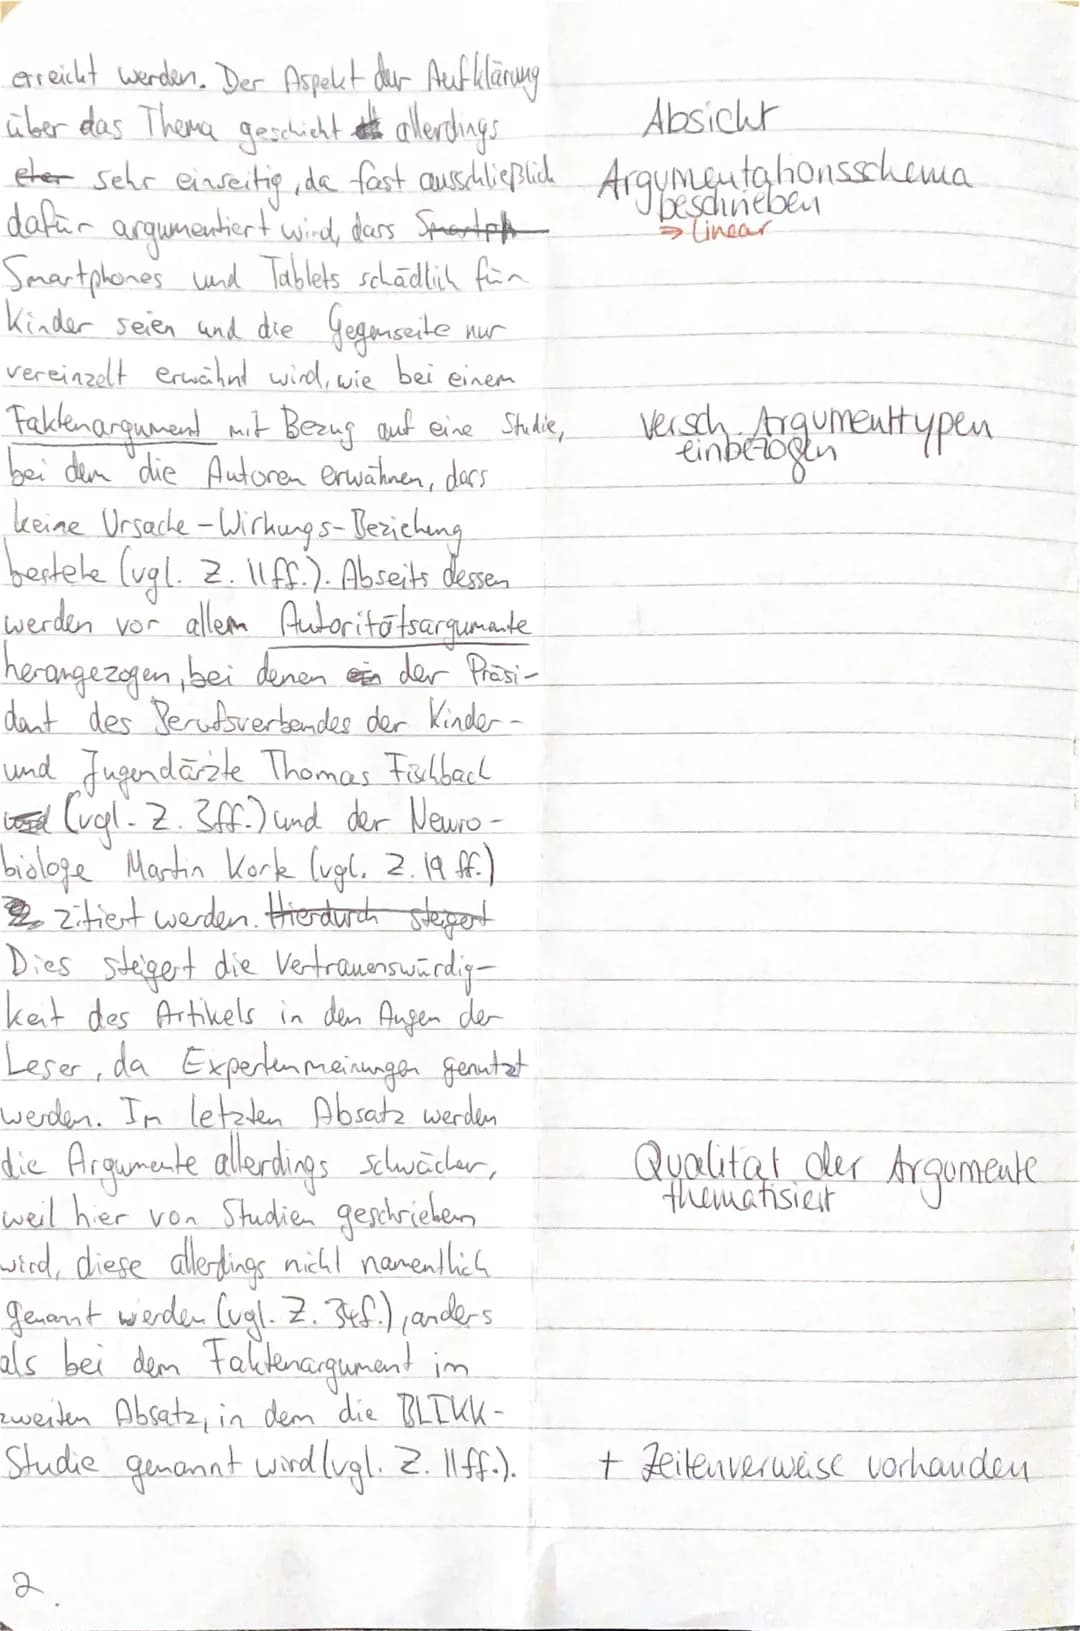 erreicht werden. Der Aspekt der Aufklärung
über das Thema geschieht allerdings
eher sehr einseitig, da fast ausschließlich
dafür argumentiert wird, dass Smartph
Smartphones und Tablets schädlich für
Kinder seien und die Gegenseite nur
vereinzelt erwähnt wird, wie bei einem
Faktenargument mit Bezug auf eine Studie,
bei dem die Autoren erwähnen, dass
keine Ursache-Wirkungs-Beziehung
bestehe (vgl. Z. 11ff.). Abseits dessen
werden vor allem Autoritätsargumente
herangezogen, bei denen ein der Präsi-
dent des Berufsverbandes der Kinder-
und Jugendärzte Thomas Fischbach
(vgl. Z. 3ff.) und der Neuro-
biologe Martin Korte (vgl. Z. 19 ff.)
zitiert werden. Hierdurch steigert
Dies steigert die Vertrauenswürdig-
keit des Artikels in den Augen der
Leser, da Expertenmeinungen genutzt
werden. Im letzten Absatz werden
die Argumente allerdings schwächer,
weil hier von Studien geschrieben
wird, diese allerdings nicht namentlich
genannt werden (vgl. Z. 34f.), anders
als bei dem Faktenargument im
zweiten Absatz, in dem die BLIKK-
Studie genannt wird (vgl. Z. 11ff.).
2.
Absicht
Argumentationsschema
beschrieben
⇒ linear
Versch. Argumenttypen
einbezogen
Qualität der Argumente
thematisiert
+ Zeilenverweise vorhanden